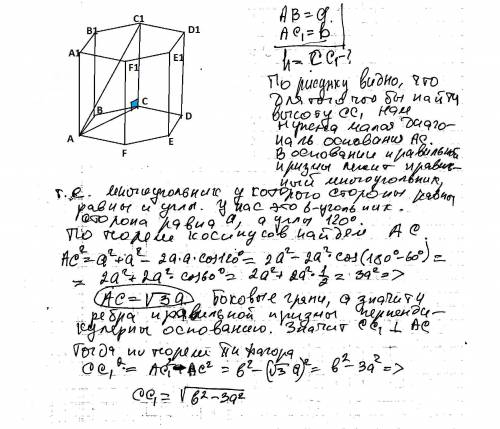 C1
B1
D1
A1
E1
F1
B
C
D
A
F
E
AB = a
AC₁ = b
h = CC₁ - ?
По рисунку видно, что
для того что бы найти
высоту CC₁ нам
нужна малая диаго-
наль основания AC.
В основании правильной
призмы лежит правиль-
ный многоугольник,
т.е. многоугольник у которого стороны равны
равны и углы. У нас это 6-угольник.
сторона равна a, а углы 120°.
По теореме косинусов найдем AC.
AC² = a² + a² - 2a·a·cos120° = 2a² - 2a²·cos(180° - 60°) =
= 2a² + 2a²·cos60° = 2a² + 2a²·1/2 = 3a² =>
AC = √3a Боковые грани, а значит и
ребра правильной призмы перпенди-
кулярны основанию. Значит CC₁ ⊥ AC
Тогда по теореме Пифагора
CC₁² = AC₁² - AC² = b² - (√3a)² = b² - 3a² =>
CC₁ = √b² - 3a²